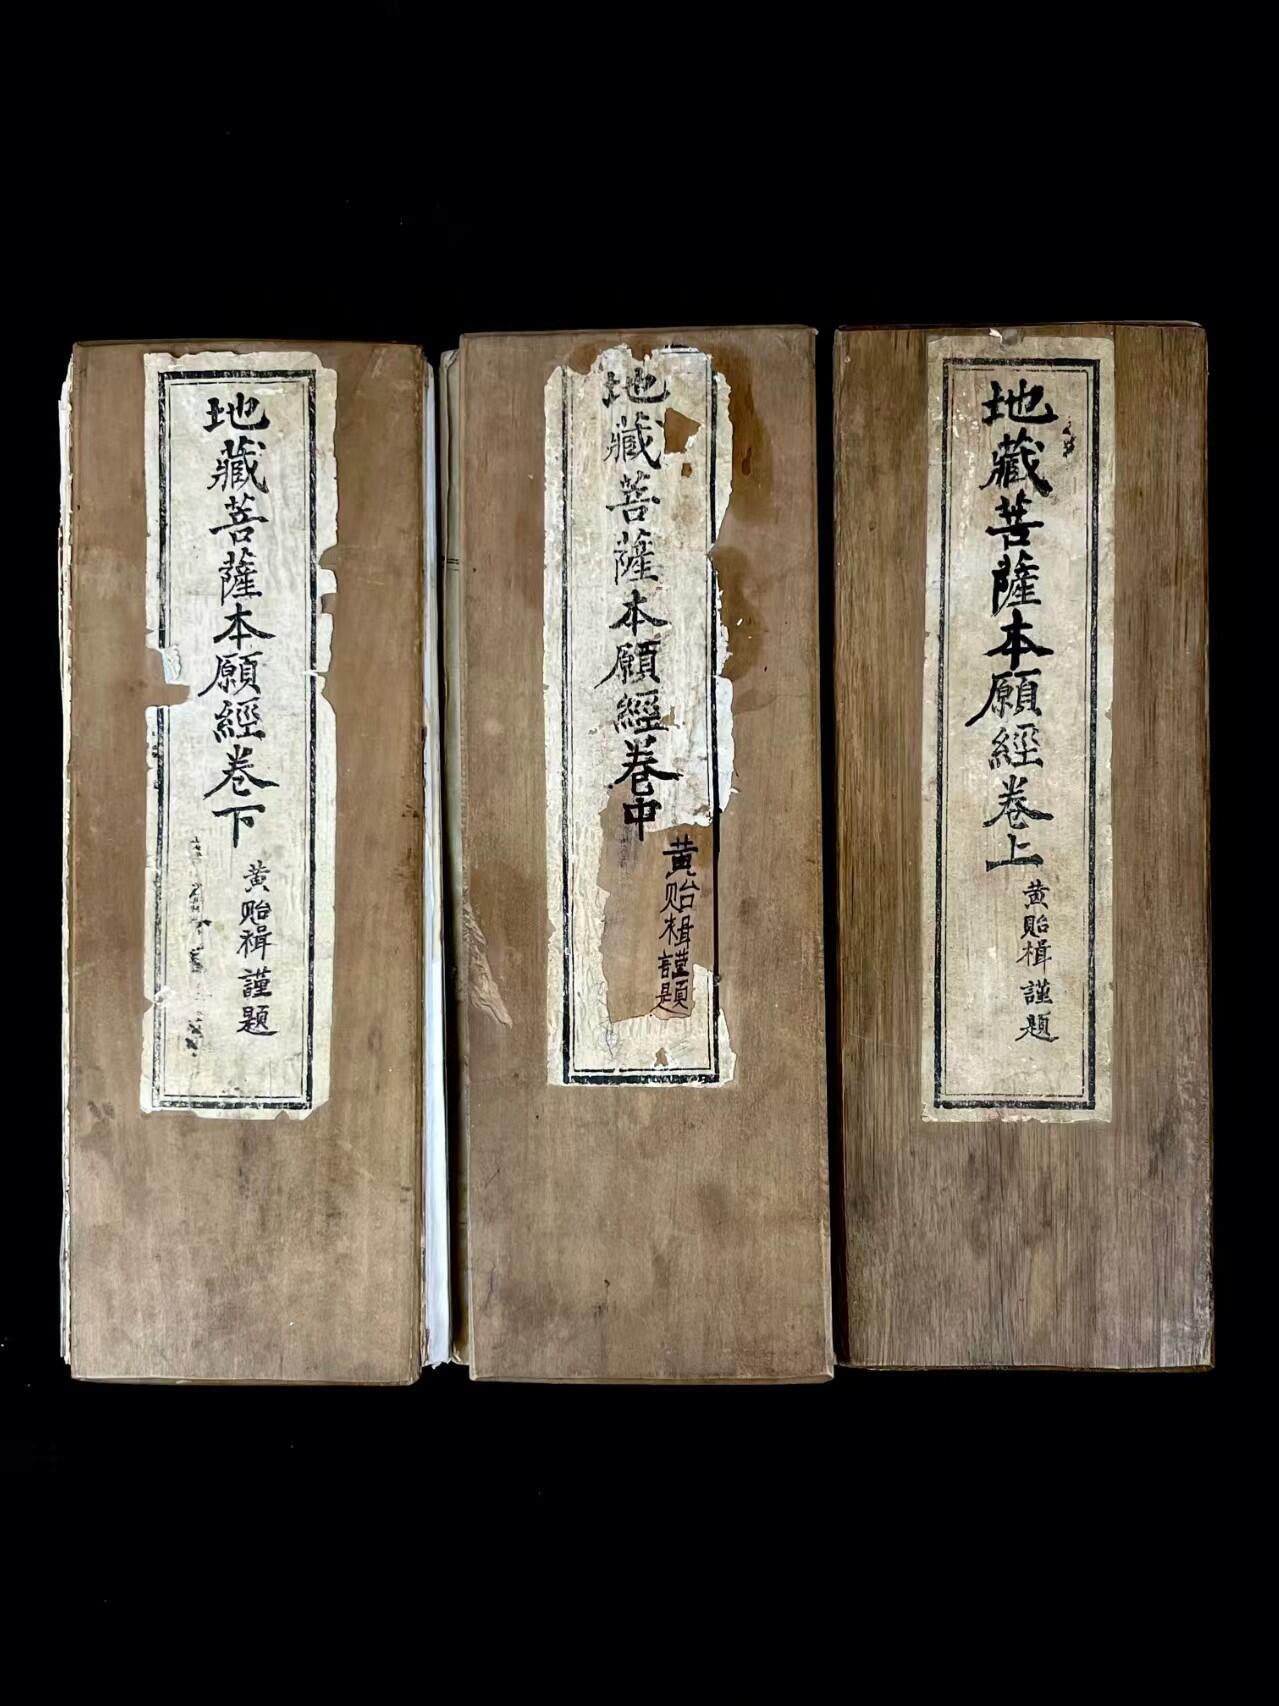 地藏菩薩本願經卷上
黃貽楫謹題
地藏菩薩本願經卷中
黃貽楫謹題
地藏菩薩本願經卷下
黃貽楫謹題